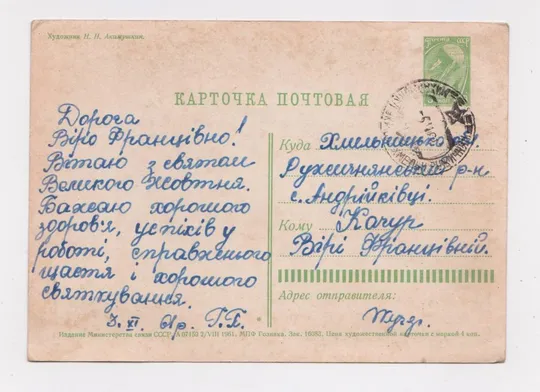 Художник Н. Н. Акимушкин.
КАРТОЧКА ПОЧТОВАЯ
Дорога
Віро Францівно!
Вітаю з святом
Великого Жовтня.
Бажаю хорошого
здоров'я, успіхів у
роботі, справжнього
щастя і хорошого
святкування.
3. XI. Г. П.
Куда Хмельницька
р-н
с. Андрійківці.
Кому Качур
Вірі Францівній.
Адрес отправителя:
Издание Министерства связи СССР. А 07153 2/VIII 1961. МПФ Гознака. Зак. Цена художественной карточки с маркой 4 коп.